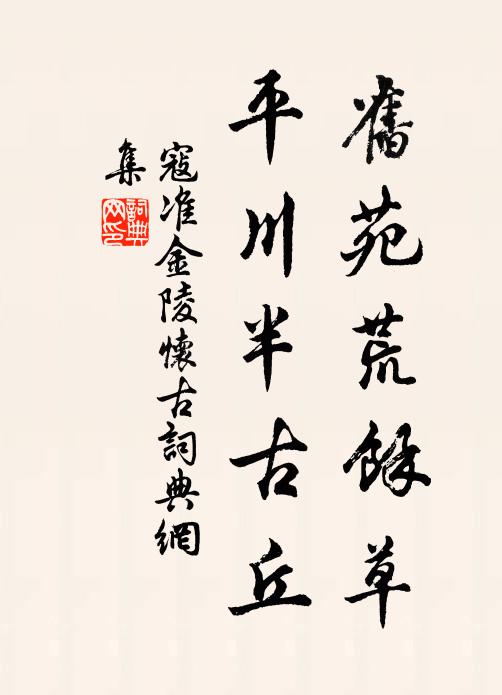 舊苑荒餘草
平川半古丘
寇准金陵懷古詞典網
集
詞典
网印